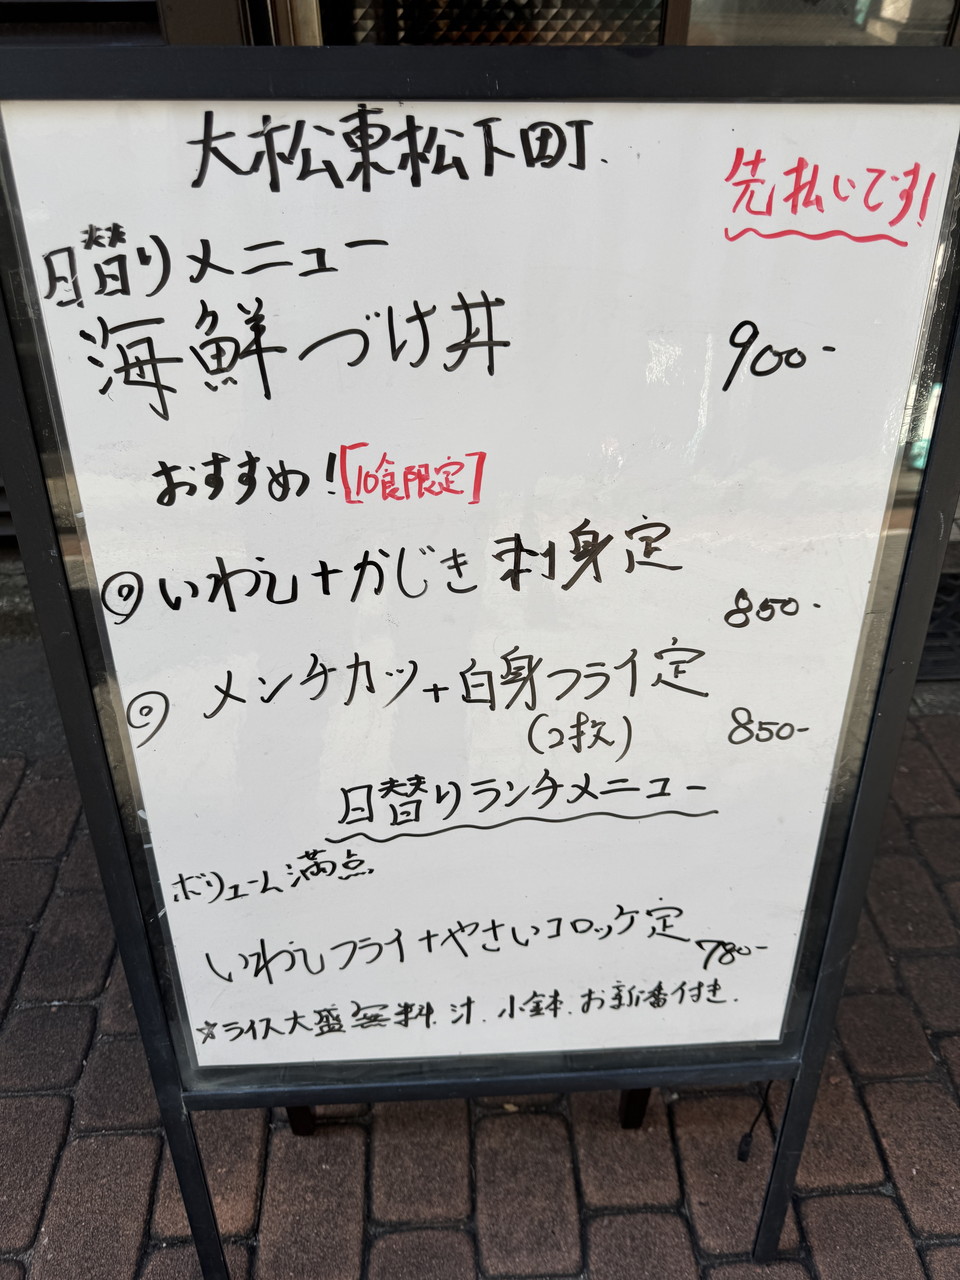 大松東松下町.
先払いです!
日替りメニュー
海鮮づけ丼 900-
おすすめ! [10食限定]
◎いわし+かじき刺身定 850-
◎ メンチカツ+白身フライ定 850-
(2枚)
日替りランチメニュー
ボリューム満点
いわしフライ+やさいコロッケ定 780-
☆ライス大盛無料. 汁. 小鉢. お新香付き.